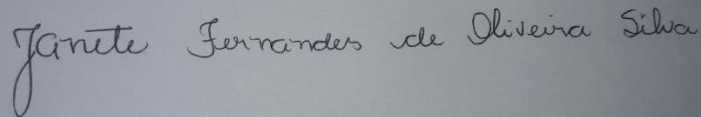 Janete Fernandes de Oliveira Silva